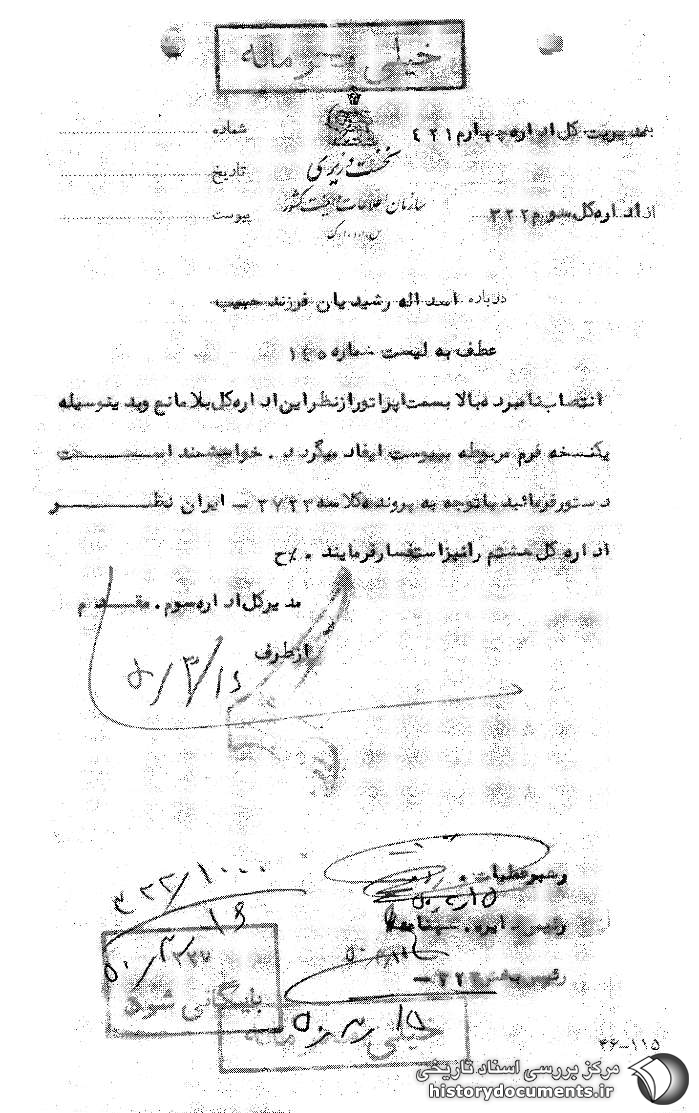 خیلی محرمانه
نخست وزیری
سازمان اطلاعات و امنیت کشور
س.ا.و.ا.ک
شماره
تاریخ
پیوست
به مدیریت کل اداره چهارم ۴۲۱
از اداره کل سوم ۳۲۲
درباره اسد اله رشیدیان فرزند حبیب
عطف به لیست شماره ۱۴۵
انتصاب نامبرده بالا بسمت اپراتور از نظر این اداره کل بلامانع و بدینوسیله
یکنسخه فرم مربوطه بپیوست ایفاد میگردد . خواهشمند است
دستور فرمائید با توجه به پرونده کلاسه ۳۷۲۳ – ایران نظر
اداره کل هشتم را نیز استفسار فرمایند . ح
مدیر کل اداره سوم . مقدم
از طرف
۵۰/۳/۱۶
۳۲۲/۱۰۰۰
۵۰/۳/۱۶
رهبر عملیات .
رئیس دایره .
رئیس بخش ۳۲۲ –
۵۰/۳/۱۵
بایگانی شود
خیلی محرمانه
۴۶-۱۱۵
مرکز بررسی اسناد تاریخی
historydocuments.ir